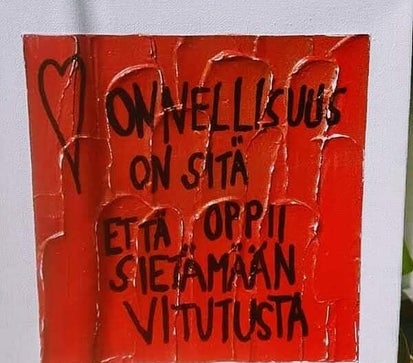 ONNELLISUUS
ON SITÄ
ETTÄ OPPII
SIETÄMÄÄN
VITUTUSTA